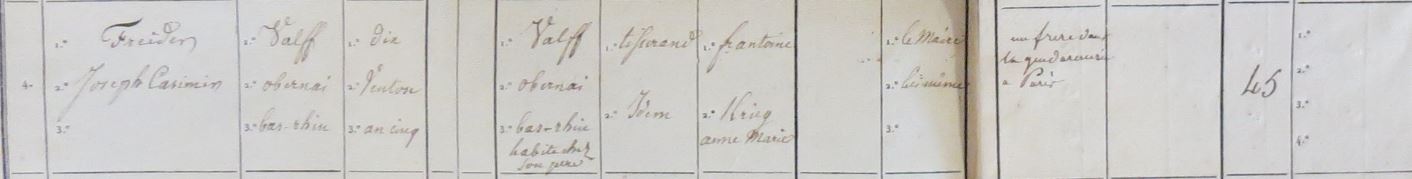 4.
1.° Freider
2.° Joseph Casimir
3.°
1.° Valff
2.° obernai
3.° bas-rhin
1.° dix
2.° Ventose
3.° an cinq
1.° Valff
2.° obernai
3.° bas-rhin
habite chez
son pere
1.° tisserand
2.° Idem
1.° fr antoine
2.° Krieg
anne Marie
1.° le Maire
2.° lui même
3.°
un frere dans
la gendarmerie
a Paris
45
1.°
2.°
3.°
4.°